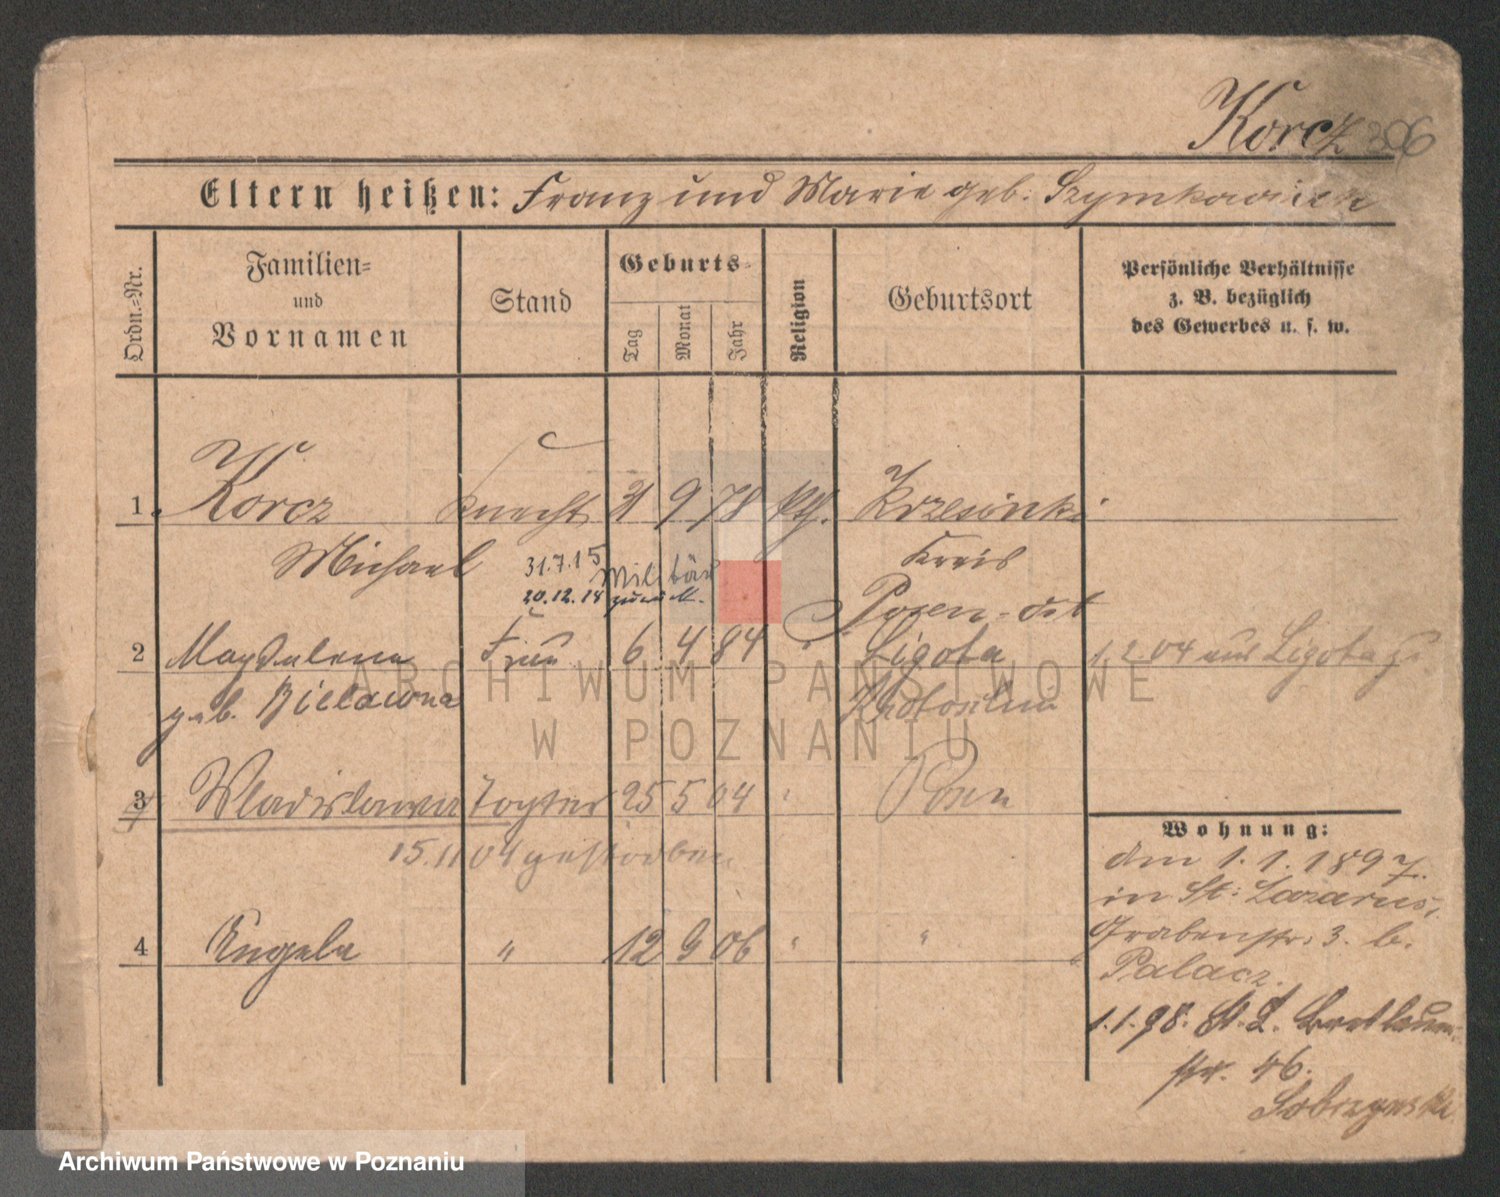 Korcz 306
Eltern heißen: Franz und Marie geb. Szymkowiak
Ordn.-Nr.
Familien-
und
Vornamen
Stand
Geburts-
Tag
Monat
Jahr
Religion
Geburtsort
Persönliche Verhältnisse
z. B. bezüglich
des Gewerbes u. s. w.
1. Korcz Knecht 21 9 78 kth. Krzesinki
Michael Kreis
31.7.15 Militär
20.12.18 zurück. Posen-Ost
2 Magdalena Frau 6 4 84 " Ligota 1.2.04 aus Ligota zu
geb. Bielawna
ARCHIWUM PAŃSTWOWE
W POZNANIU
3 Wladislawa Tochter 25 5 04 " Posen
15.11.04 gestorben
4 Angela " 12 9 06 " "
Wohnung:
den 1.1.1897.
in St. Lazarus,
Grabenstr. 3. b.
Palacz.
1.1.98. St. L.
str. 46.
Sobczynski
Archiwum Państwowe w Poznaniu